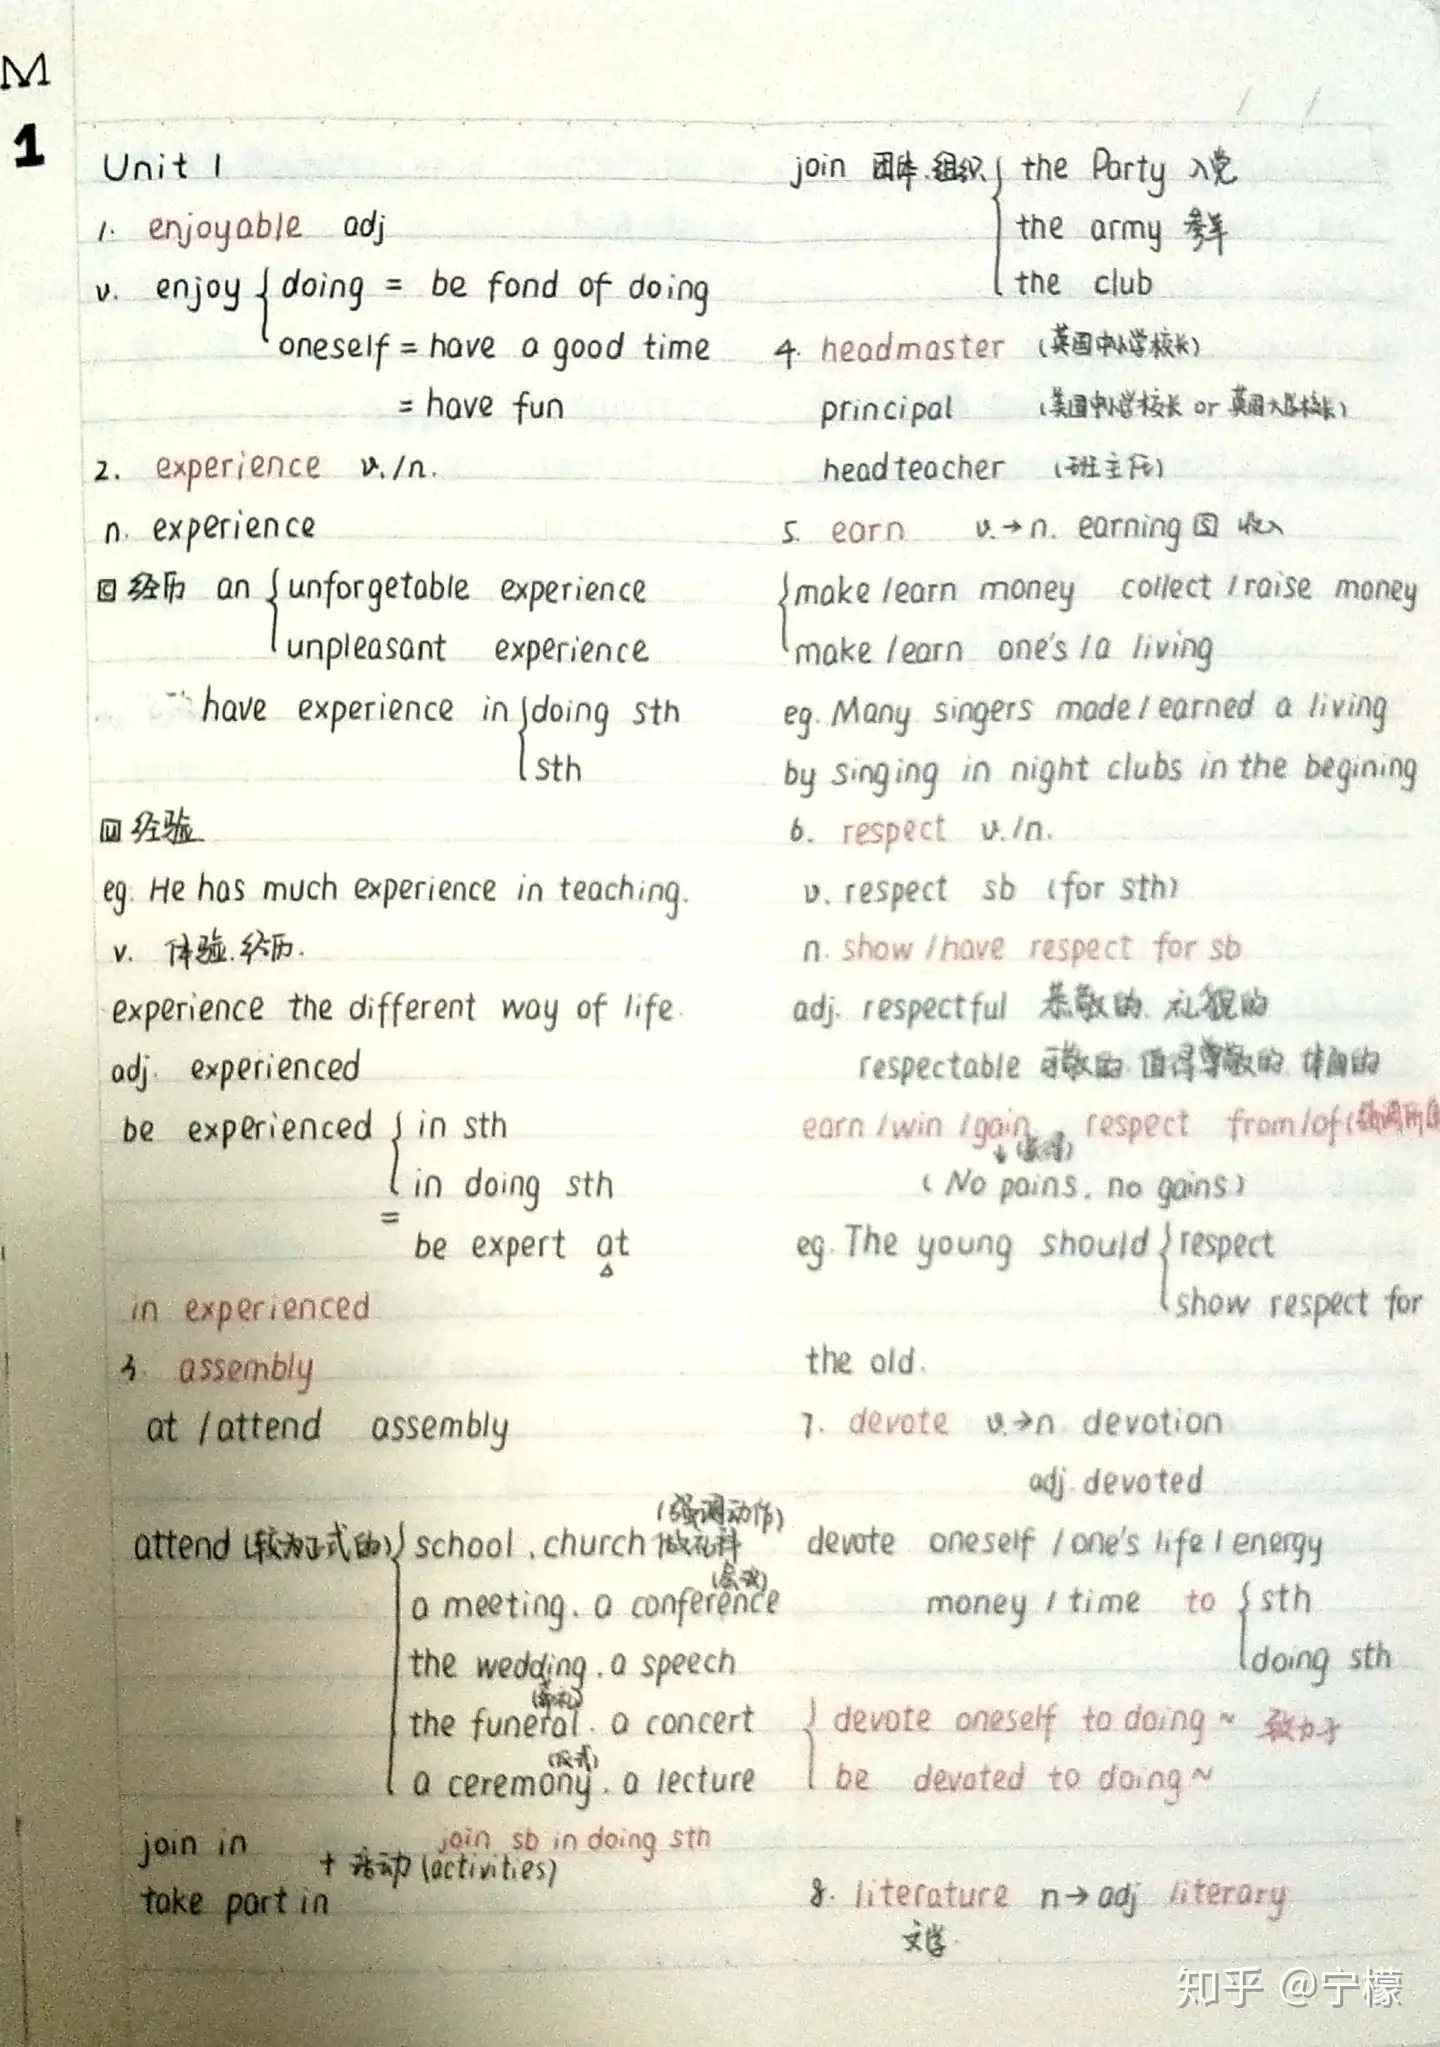 M
1
Unit 1
1. enjoyable adj
v. enjoy { doing = be fond of doing
oneself = have a good time
= have fun
2. experience v./n.
n. experience
C 经历 an { unforgetable experience
unpleasant experience
have experience in { doing sth
sth
U 经验
eg. He has much experience in teaching.
v. 体验.经历.
experience the different way of life.
adj. experienced
be experienced { in sth
in doing sth
=
be expert at
in experienced
3. assembly
at / attend assembly
(强调动作)
attend (较为正式的) { school . church 做礼拜
(会议)
a meeting . a conference
the wedding . a speech
(葬礼)
the funeral . a concert
(仪式)
a ceremony . a lecture
join in
join sb in doing sth
+ 活动 (activities)
take part in
join 团体.组织 { the Party 入党
the army 参军
the club
4. headmaster (英国中小学校长)
principal (美国中小学校长 or 英国大学校长)
headteacher (班主任)
5. earn v.→n. earning 收入
{ make / earn money collect / raise money
make / earn one's / a living
eg. Many singers made / earned a living
by singing in night clubs in the begining
6. respect v./n.
v. respect sb (for sth)
n. show / have respect for sb
adj. respectful 恭敬的. 礼貌的
respectable 可敬的. 值得尊敬的. 体面的
earn / win / gain respect from / of (强调所
↓ (获得)
(No pains, no gains)
eg. The young should { respect
show respect for
the old.
7. devote v.→n. devotion
adj. devoted
devote oneself / one's life / energy
money / time to { sth
doing sth
{ devote oneself to doing ~ 致力于
be devoted to doing ~
8. literature n→adj literary
文学.
知乎 @宁檬